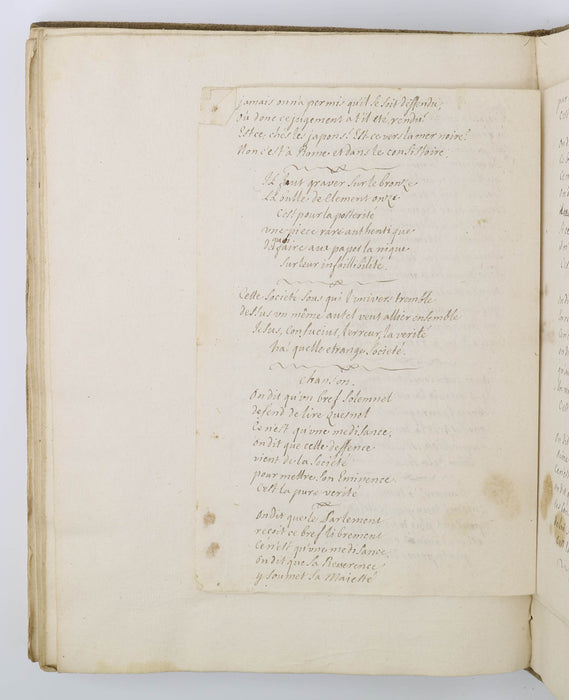 jamais on n'a permis qu'il se soit deffendu,
Où donc ce jogement a t'il eté rendu?
Est ce, chés les japons? Est ce vers la mer noire?
Non c'est à Rome et dans le consistoire.
Il faut graver sur le bronze
La bulle de Clement onze
C'est pour la posterité
vne piece rare authentique
de quoi faire aux papes la nique
Sur leur infaillibilité.
Cette Societé sous qui l'univers tremble
dessus un même autel veut allier ensemble
Jesus, Confucius, l'erreur, la verité
ha! quelle etrange Societé.
Chanson.
On dit qu'vn bref solemnel
defend de lire Quesnel
Ce n'est qu'vne medisance,
on dit que cette deffence
vient de la Societé
pour mettre Son Eminence
C'est la pure verité
On dit que le Parlement
reçoit ce bref librement
Ce n'est qu'vne medisance,
on dit que sa Reverence
y soumet sa Majesté